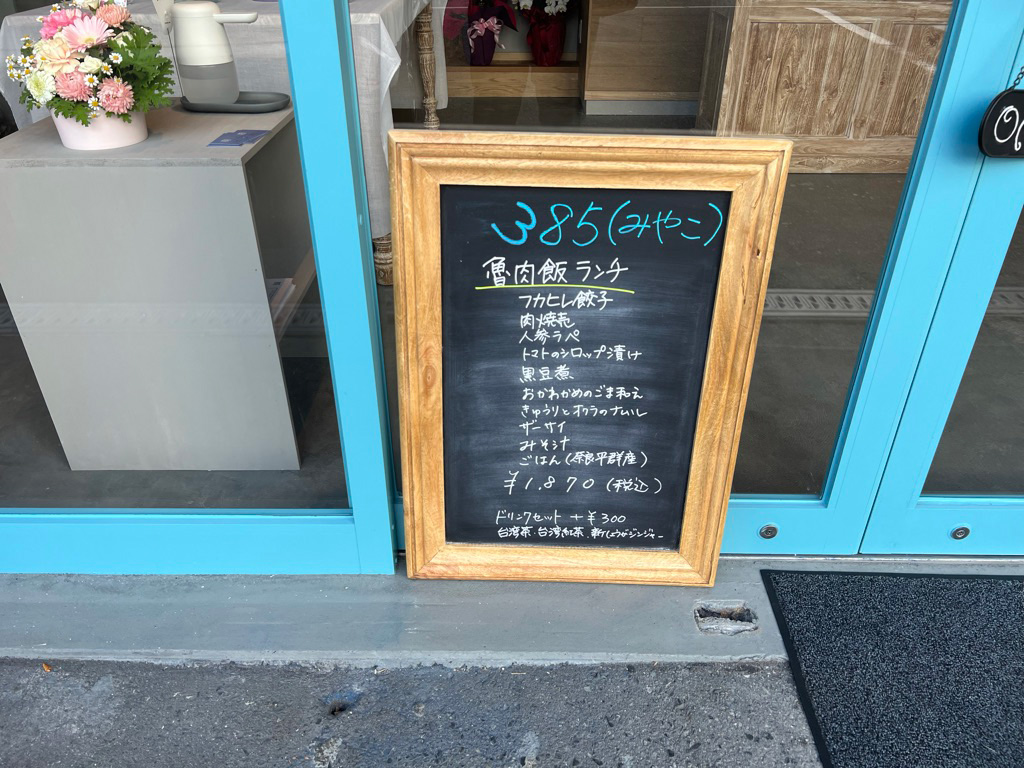 385(みやこ)
魯肉飯ランチ
フカヒレ餃子
肉焼売
人参ラペ
トマトのシロップ漬け
黒豆煮
おかわかめのごま和え
きゅうりとオクラのナムル
ザーサイ
みそ汁
ごはん(奈良平群産)
¥1,870(税込)
ドリンクセット +¥300
台湾茶・台湾紅茶・新しょうがジンジャー